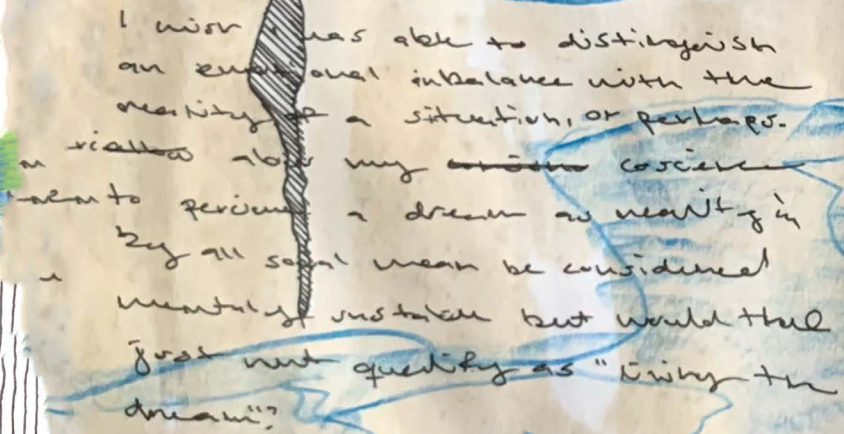 I wish I was able to distinguish
an emotional inbalance with the
reality of a situation, or perhaps.
my
to a dream as reality in
by all social mean be considered
mentaly but would that
just not quality as "living the
dream"?